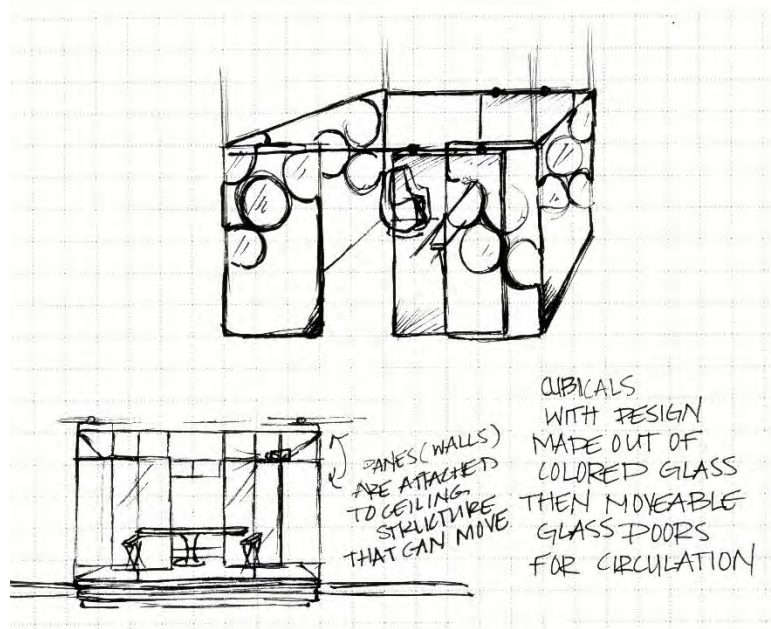 PANES (WALLS)
ARE ATTACHED
TO CEILING
STRUCTURE
THAT CAN MOVE
CUBICALS
WITH DESIGN
MADE OUT OF
COLORED GLASS
THEN MOVEABLE
GLASS DOORS
FOR CIRCULATION